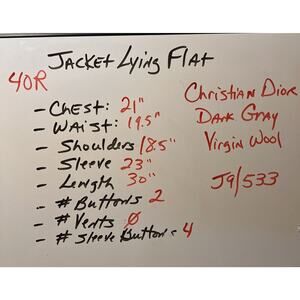 Jacket Lying Flat
40R
- Chest: 21"
- Waist: 19.5"
- Shoulders 18.5"
- Sleeve 23"
- Length 30"
- # Buttons 2
- # Vents Ø
- # Sleeve Buttons 4
Christian Dior
Dark Gray
Virgin Wool
J9/533